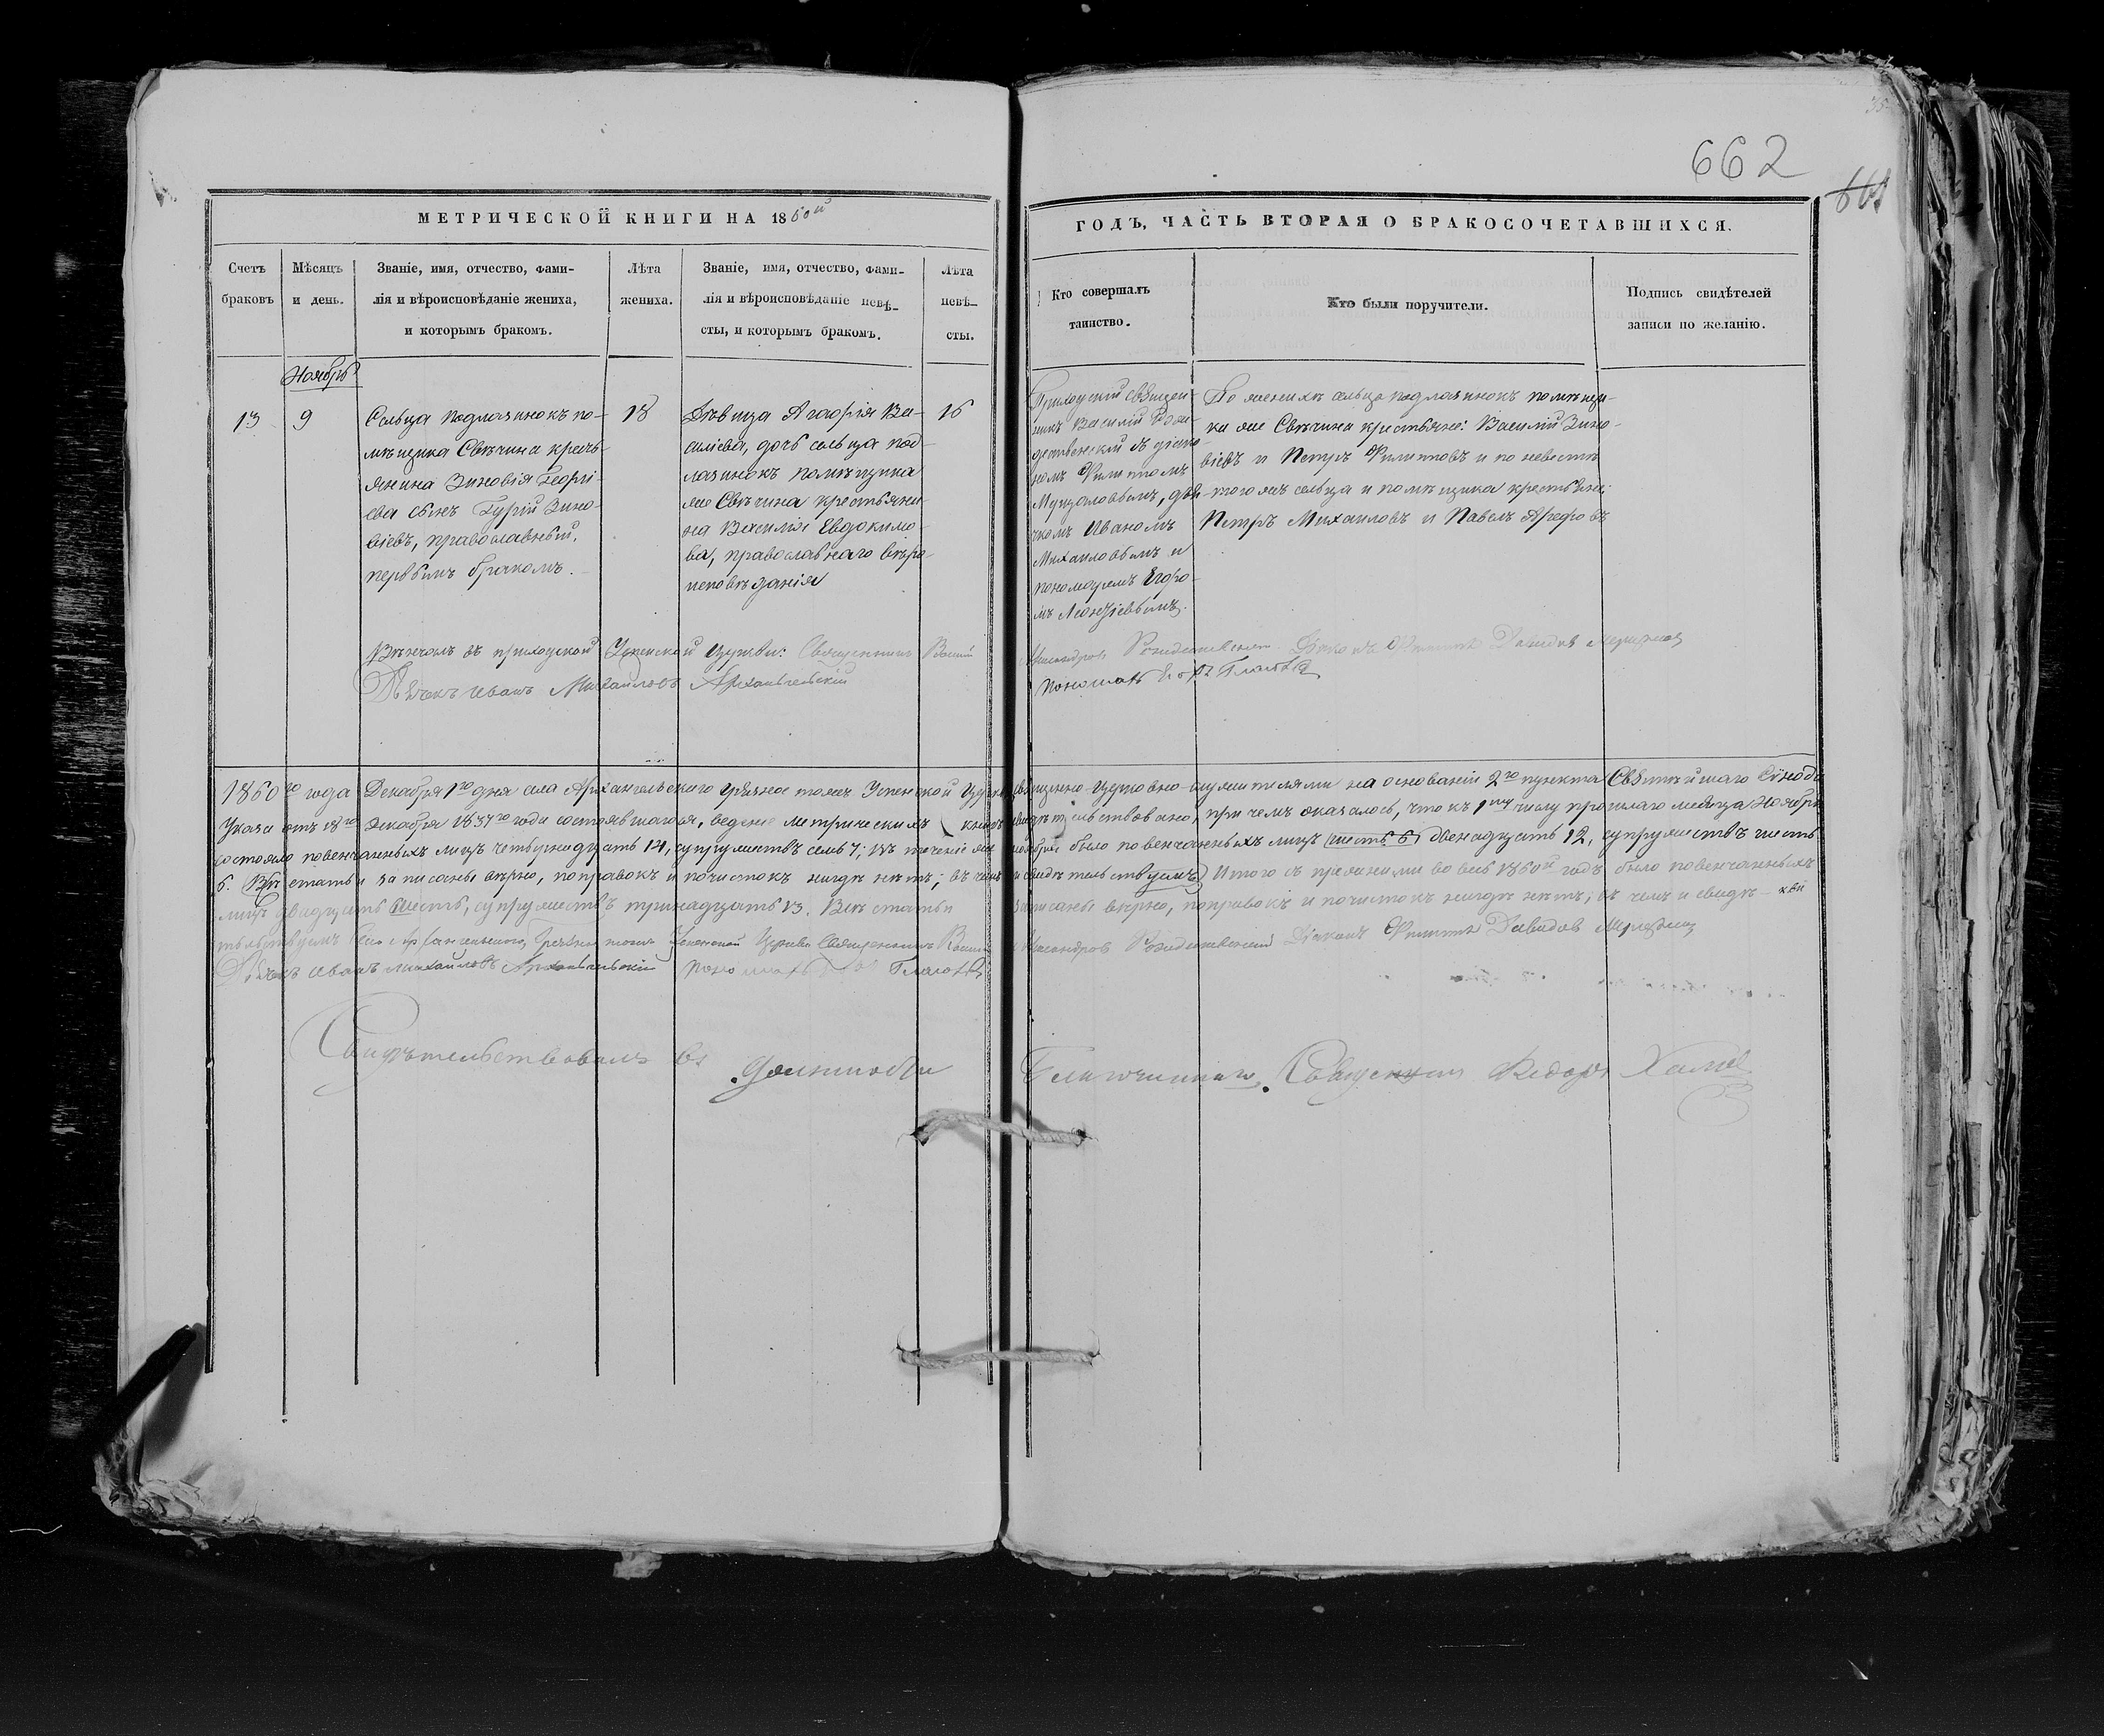 662
МЕТРИЧЕСКОЙ КНИГИ НА 1860й
ГОДЪ, ЧАСТЬ ВТОРАЯ О БРАКОСОЧЕТАВШИХСЯ.
Счетъ
браковъ
Мѣсяцъ
и день.
Званіе, имя, отчество, фами-
лія и вѣроисповѣданіе жениха,
и которымъ бракомъ.
Лѣта
жениха.
Званіе, имя, отчество, фами-
лія и вѣроисповѣданіе невѣ-
сты, и которымъ бракомъ.
Лѣта
невѣ-
сты.
Кто совершалъ
таинство.
Кто были поручители.
Подпись свидѣтелей
записи по желанію.
Ноябрь
13
9
Сельца Подлазинокъ по-
мѣщика Свѣчина кресть-
янина Зиновія Георгі-
ева сынъ Гурій Зино-
віевъ, православный,
первымъ бракомъ.
18
Дѣвица Агафія Ва-
силіева, дочь сельца Под-
лазинокъ помѣщика
же Свѣчина крестьяни-
на Василія Евдокимо-
ва, православнаго вѣро-
исповѣданія
16
Приходскій священ-
никъ Василій Рож-
дественскій съ діако-
номъ Филиппомъ
дья-
чкомъ Иваномъ
Михаиловымъ и
пономаремъ Егоро-
мъ Леонтіевымъ.
По женихѣ сельца Подлазинокъ помѣщи-
ка же Свѣчина крестьяне: Василій Зино-
віевъ и Петръ Филипповъ и по невестѣ
того жъ сельца и помѣщика крестьяне:
Петръ Михаиловъ и Павелъ Арефовъ
Вѣнчалъ въ приходской Успенской церкви: Священникъ Василій Александровъ Рождественскій Діаконъ Филиппъ Давидовъ
Дьячекъ Иванъ Михайловъ Архангельскій Пономарь
1860го года Декабря 1го дня села Архангельскаго Грязное тожъ Успенской Церкви священно-церковно-служителями на основаніи 2го пункта Святѣйшаго Сѵнода
Указа отъ 18го Декабря 1837го года состоявшагося, веденіе метрическихъ книгъ свидѣтельствовано, при чемъ оказалось, что къ 1му числу прошлаго месяца Ноября
состояло повенчанныхъ лицъ четырнадцать 14, супружествъ семь 7; въ теченіе же ноября было повенчанныхъ лицъ шесть 6 двенадцать 12, супружествъ шесть
6. Всѣ статьи записаны вѣрно, поправокъ и почистокъ нигдѣ нѣтъ; въ чемъ и свидѣтельствуемъ Итого съ прежними во весь 1860й годъ было повенчанныхъ
лицъ двадцать шесть, супружествъ тринадцать 13. Всѣ статьи записаны вѣрно, поправокъ и почистокъ нигдѣ нѣтъ; въ чемъ и свидѣ-
тельствуемъ Села Архангельскаго Грязное тожъ Успенской Церкви Священникъ Василій Александровъ Рождественскій Діаконъ Филиппъ Давидовъ
Дьячекъ Иванъ Михайловъ Архангельскій Пономарь
Свидѣтельствовалъ въ должности Благочиннаго, Священникъ Ѳедоръ